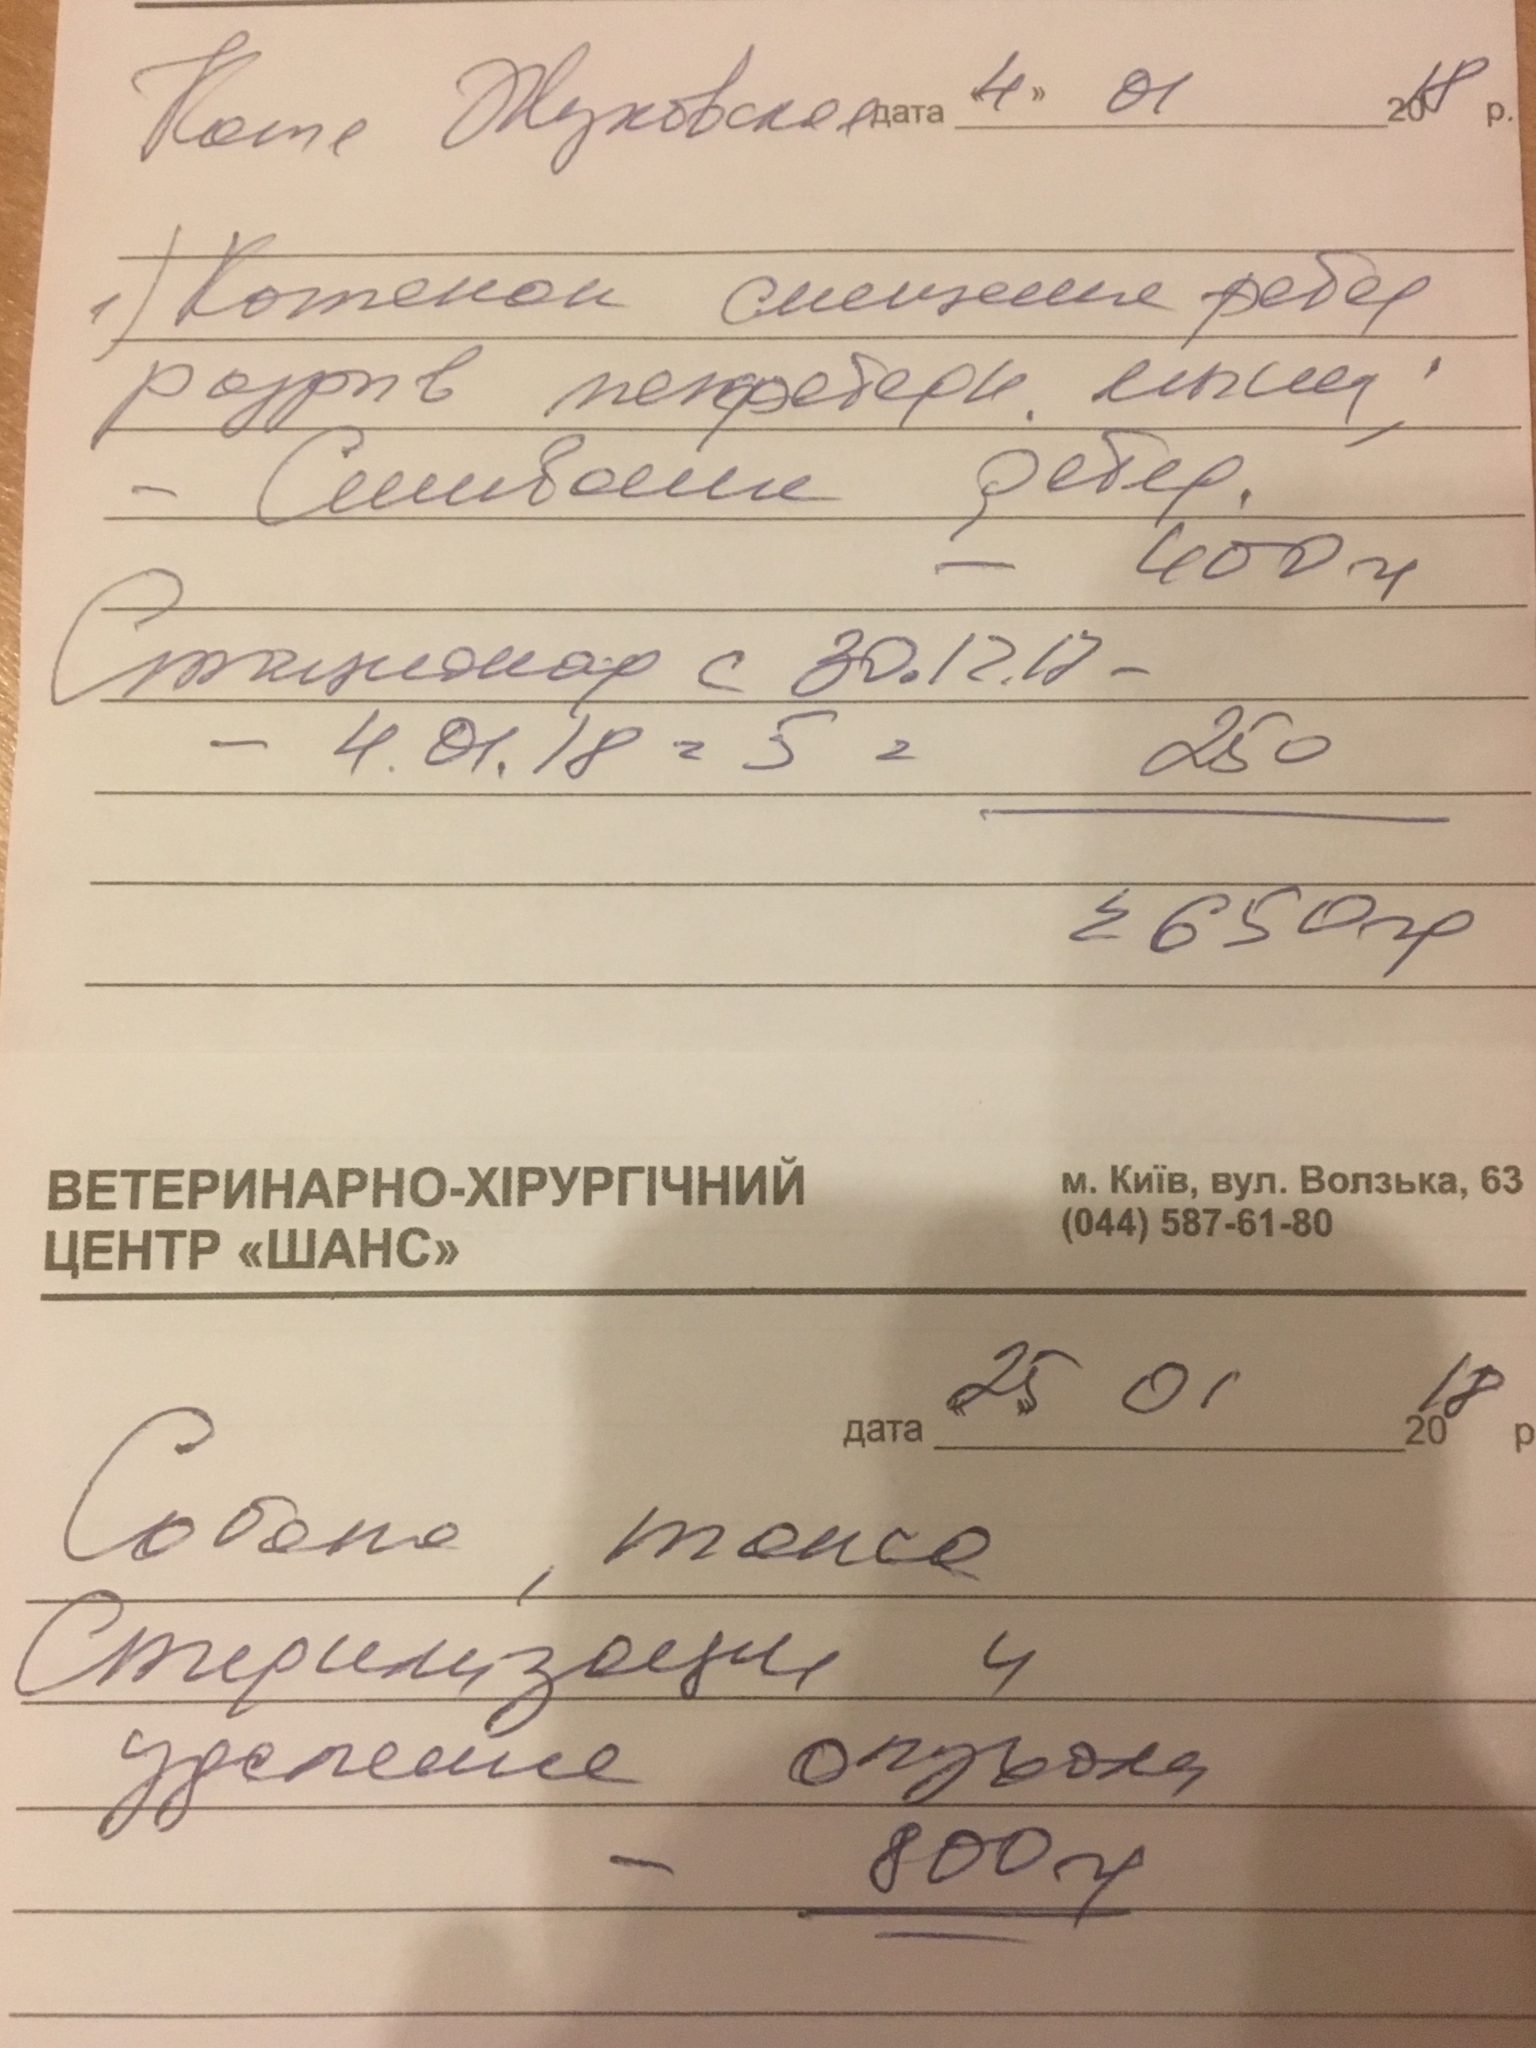 Катя Жуковская дата «4» 01 2018 р.
1) Котенок смещение ребер
разрыв межреберн. мышц;
- Сшивание ребер.
- 400 гр
Стационар с 30.12.17 -
- 4.01.18 = 5 = 250
= 650 гр
ВЕТЕРИНАРНО-ХІРУРГІЧНИЙ
ЦЕНТР «ШАНС»
м. Київ, вул. Волзька, 63
(044) 587-61-80
дата «25» 01 2018 р
Собака, такса
Стерилизация и
удаление опухоли
- 800 гр